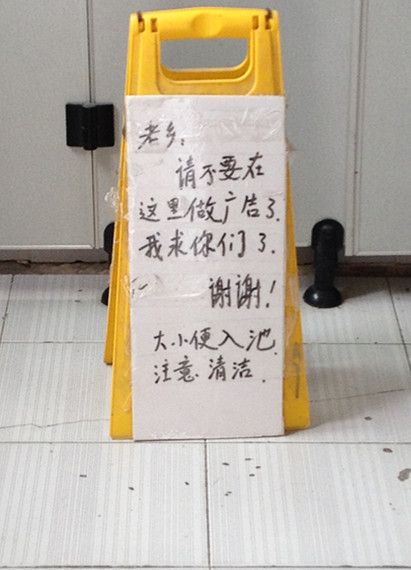 老乡,
请不要在
这里做广告了.
我求你们了.
谢谢!
大小便入池
注意清洁.